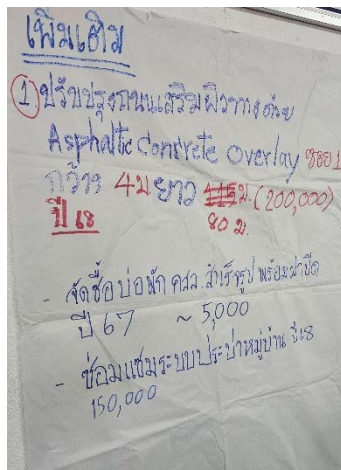 เพิ่มเติม
1 ปรับปรุงถนนเสริมผิวทางด้วย
Asphaltic Concrete Overlay ซอย 1
กว้าง 4 ม ยาว ม. (200,000)
ปี 68 80 ม.
- จัดซื้อบ่อพัก คสล สำเร็จรูป พร้อมฝาปิด
ปี 67 ~ 5,000
- ซ่อมแซมระบบประปาหมู่บ้าน ปี 68
150,000